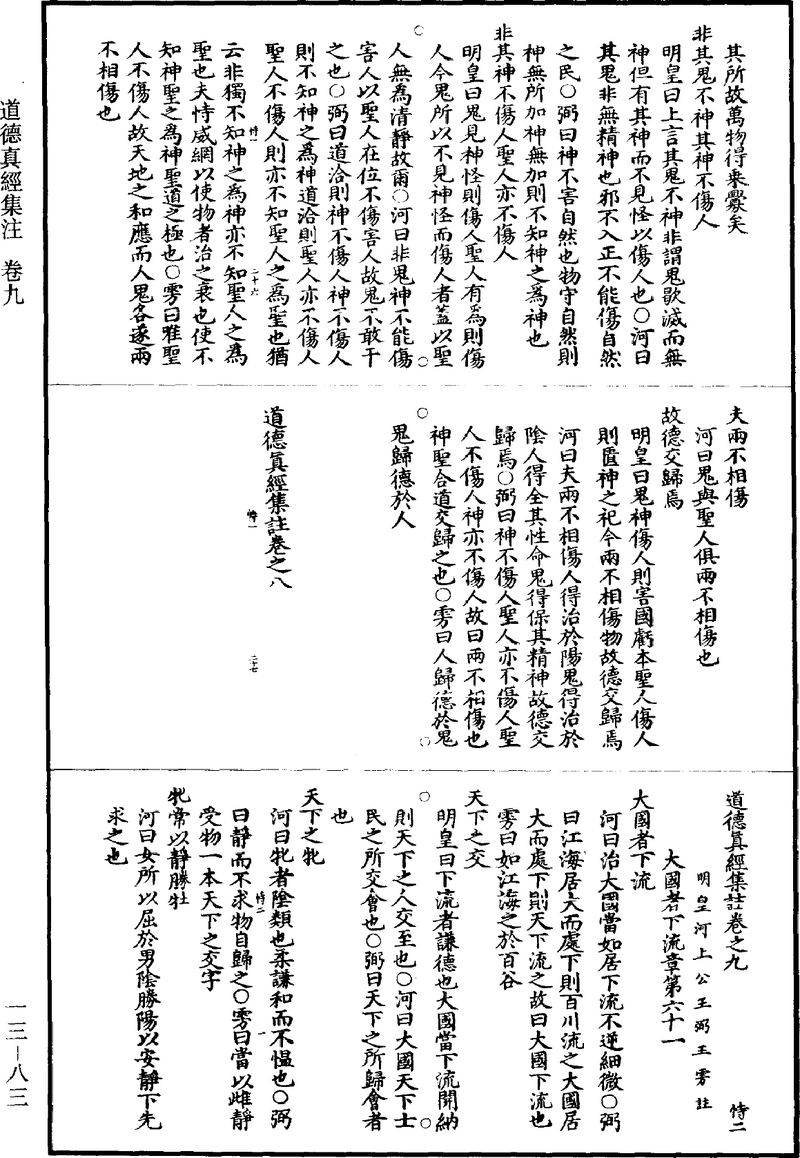 其所故萬物得乗釁矣
非其鬼不神其神不傷人
明皇曰上言其鬼不神非謂鬼歇滅而無
神但有其神而不見怪以傷人也○河曰
其鬼非無精神也邪不入正不能傷自然
之民○弼曰神不害自然也物守自然則
神無所加神無加則不知神之為神也
非其神不傷人聖人亦不傷人
明皇曰鬼見神怪則傷人聖人有為則傷
人今鬼所以不見神怪而傷人者蓋以聖
人無為清靜故爾○河曰非鬼神不能傷
害人以聖人在位不傷害人故鬼不敢干
之也○弼曰道洽則神不傷人神不傷人
則不知神之為神道洽則聖人亦不傷人
聖人不傷人則亦不知聖人之爲聖也猶
恃一
二十六
云非獨不知神之為神亦不知聖人之為
聖也夫恃威網以使物者治之衰也使不
知神聖之為神聖道之極也○雱曰唯聖
人不傷人故天地之和應而人鬼各遂兩
不相傷也
夫兩不相傷
河曰鬼與聖人俱兩不相傷也
故德交歸焉
明皇曰鬼神傷人則害國虧本聖人傷人
則匱神之祀今兩不相傷物故德交歸焉
河曰夫兩不相傷人得治於陽鬼得治於
陰人得全其性命鬼得保其精神故德交
歸焉○弼曰神不傷人聖人亦不傷人聖
人不傷人神亦不傷人故曰兩不相傷也
神聖合道交歸之也○雱曰人歸德於鬼
鬼歸德於人
道德真經集註卷之八
恃一
二十七
道德真經集註卷之九
恃二
明皇河上公王弼王雱註
大國者下流章第六十一
大國者下流
河曰治大國當如居下流不逆細微○弼
曰江海居大而處下則百川流之大國居
大而處下則天下流之故曰大國下流也
雱曰如江海之於百谷
天下之交
明皇曰下流者謙德也大國當下流開納
則天下之人交至也○河曰大國天下士
民之所交會也○弼曰天下之所歸會者
也
天下之牝
河曰牝者陰類也柔謙和而不愠也○弼
恃二
一
曰靜而不求物自歸之○雱曰當以雌靜
受物一本天下之交字
牝常以靜勝牡
河曰女所以屈於男陰勝陽以安靜下先
求之也
道德真經集注　卷九
一三－八三